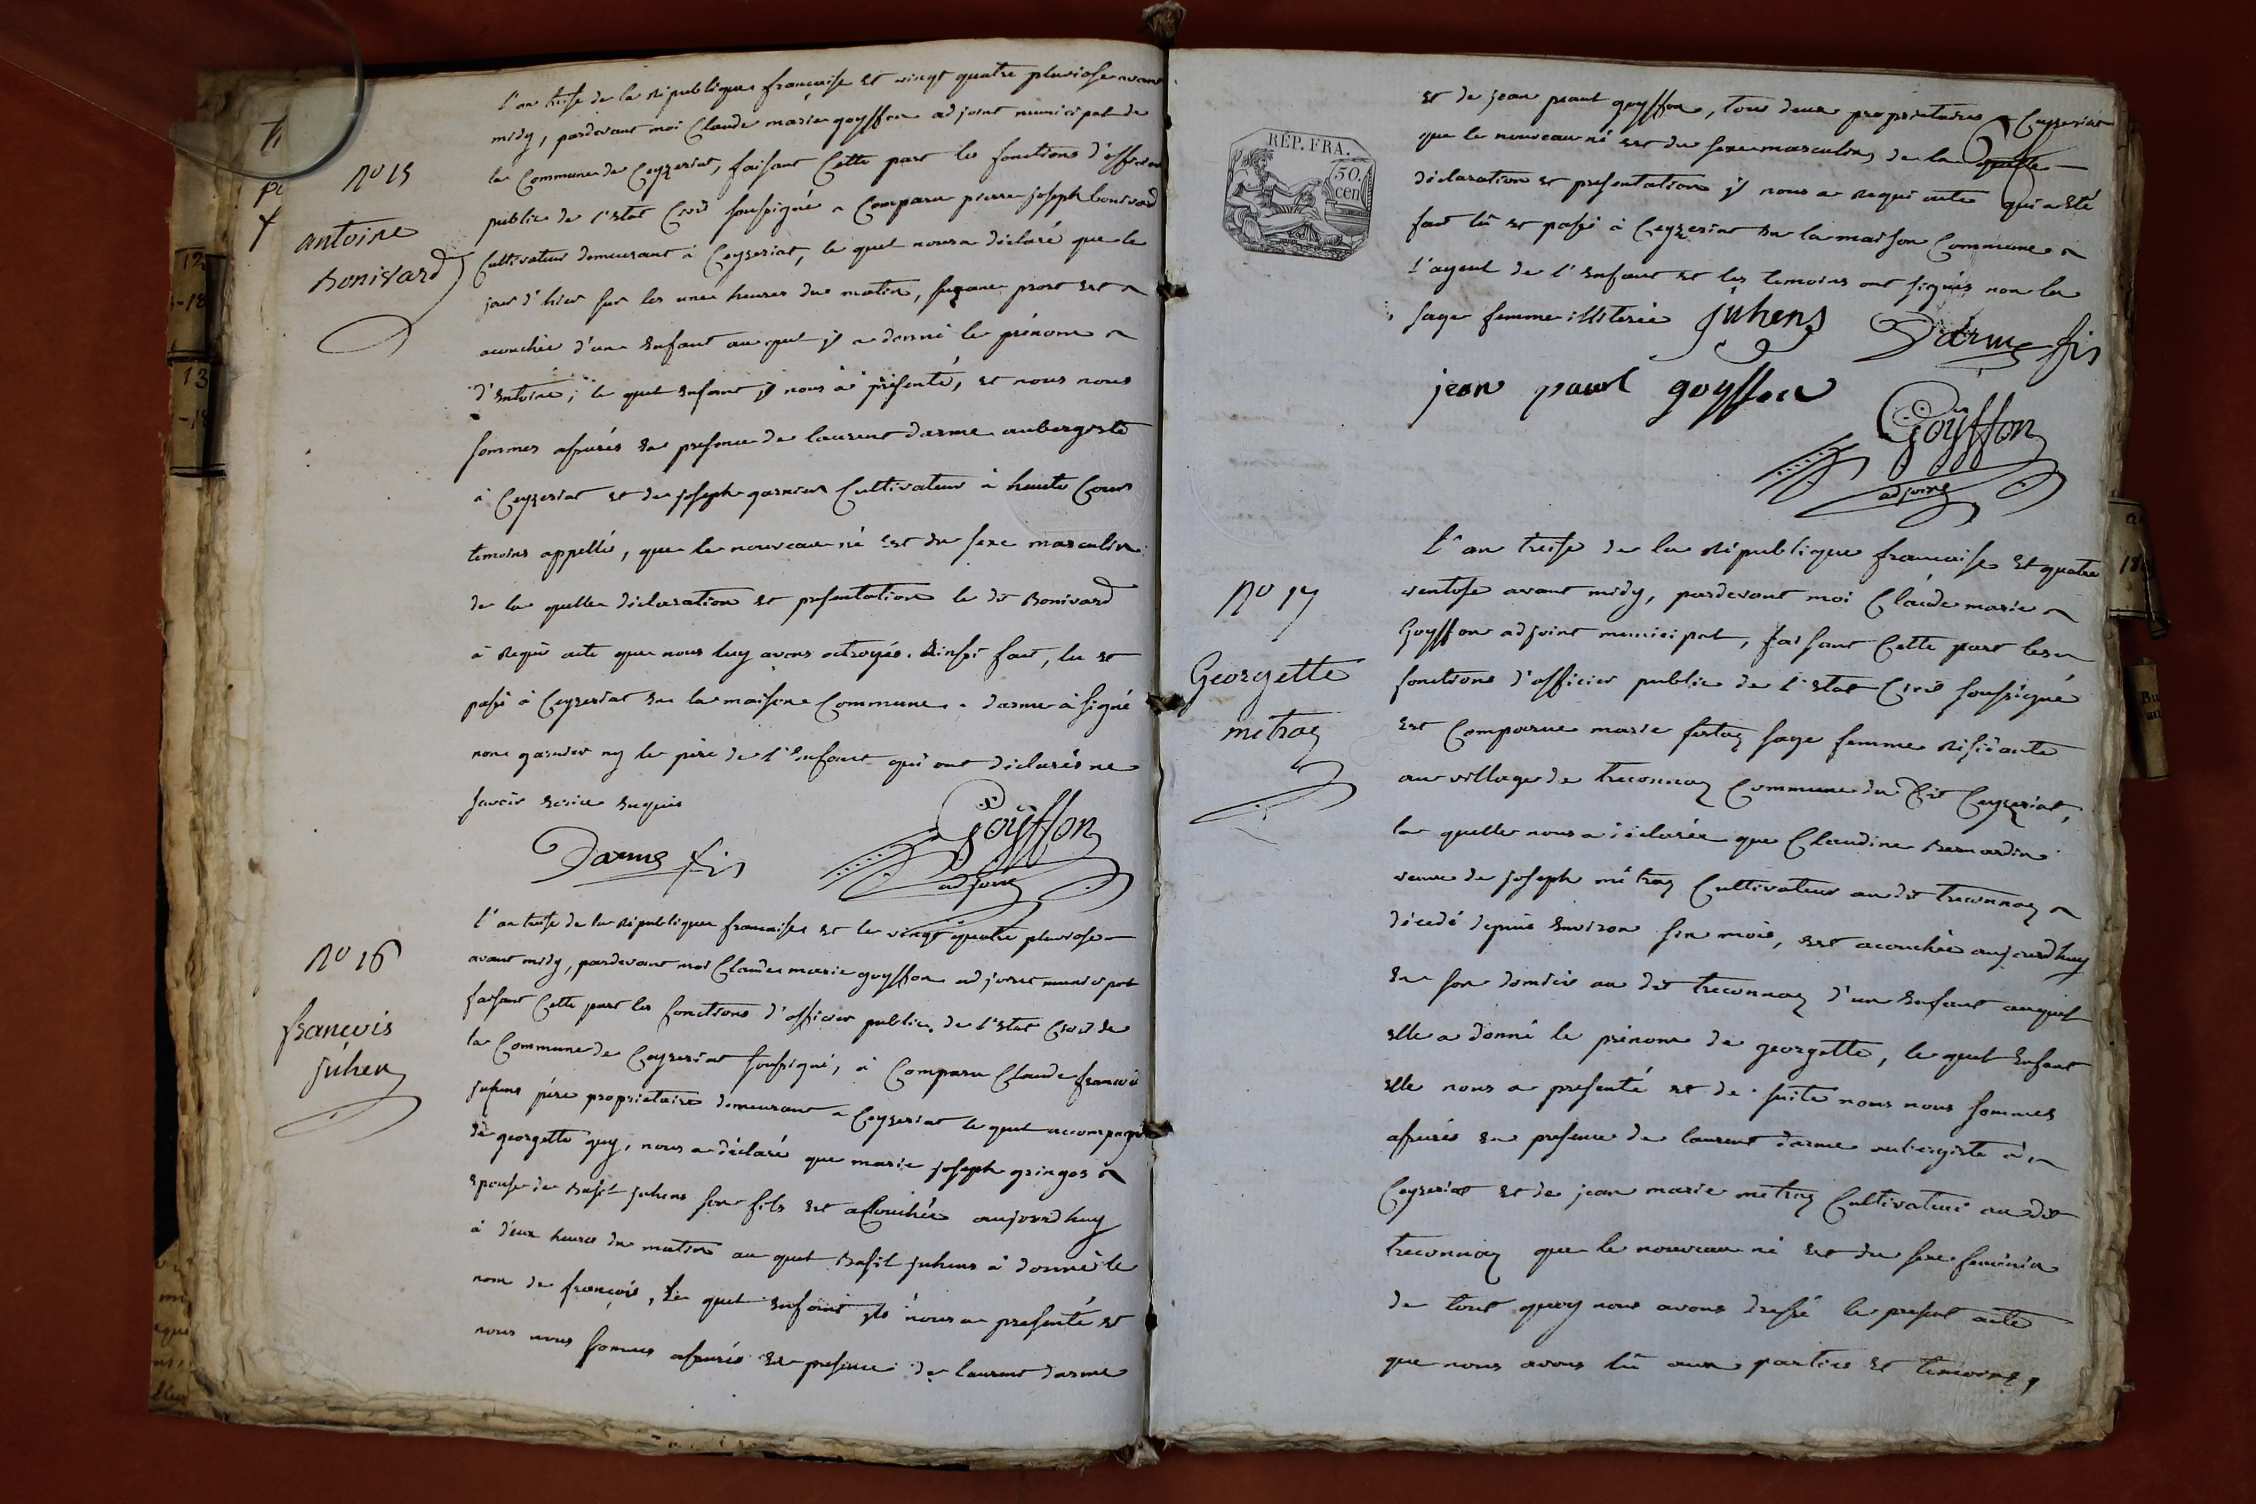 l'an treise de la République françoise et vingt quatre pluviose avant
midy, pardevant moi Claude marie goyffon adjoint municipal de
la Commune de Ceyzeriat, faisant Cette part les fonctions d'officier
N° 15
public de l'Etat Civil soussigné a Comparu pierre joseph bonivard
antoine
Bonivard
Cultivateur demeurant à Ceyzeriat, le quel nous a déclaré que le
jour d'hier sur les unze heures du matin, suzane prost est
acouchée d'un Enfant au quel il a donné le prénom
d'Antoine, le quel enfant il nous à présenté, et nous nous
sommes assurés en presence de laurent darme aubergiste
à Ceyzeriat et de joseph garnier Cultivateur à haute Cour
temoins appellés, que le nouveau né est du sexe masculin
de la quelle déclaration et presentation le dt Bonivard
à Requis acte que nous luy avons octroyés. Ainsi fait, lu et
passé à Ceyzeriat En la maison Commune. darme à signé
non garnier ny le père de l'Enfant qui ont déclarés ne
savoir Ecrire Enquis
Darme fis
Goÿffon
adjoint
N° 16
françois
juhen
l'an treise de la République francaise et le vingt quatre pluviose
avant midy, pardevant moi Claude marie goyffon adjoint municipal
faisant Cette part les fonctions d'officier public de l'Etat Civil de
la Commune de Ceyzeriat soussigné, à Comparu Claude francois
juhens père proprietaire demeurant a Ceyzeriat le quel accompagné
de georgette guy, nous a déclaré que marie joseph gringos
epouse de Basil juhens son fils est acouchée aujourdhuy
à deux heures du matin au quel Basil juhens à donné le
nom de françois, Le quel Enfant ils nous a presenté et
nous nous sommes assurés En presence de laurent darme
RÉP. FRA.
50.
cen
et de jean paul goyffon, tous deux proprietaires Ceyzeriat
que le nouveau né est du sexe masculin, de la quelle
déclaration et presentation il nous a Requi acte qui a Eté
fait lû et passé à Ceyzeriat En la maison Commune
l'ayeul de l'Enfant et les temoins ont signés non la
sage femme illiterée
juhens
Darme fis
jean paul goyffon
Goÿffon
adjoint
N° 17
Georgette
metraz
l'an treise de la République francaise Et quatre
ventose avant midy, pardevant moi Claude marie
Goyffon adjoint municipal, faisant Cette part les
fonctions d'officier public de l'Etat Civil soussigné
est Comparue marie festaz sage femme Résidante
au village de treconnaz Commune du dit Ceyzeriat,
la quelle nous a déclarée que Claudine Bernardin
veuve de joseph métraz Cultivateur au dit treconnaz
décedé depuis Environ six mois, est acouchée aujourdhuy
En son domicil au dit treconnaz d'un Enfant auquel
elle a donné le prénom de georgette, le quel Enfant
elle nous a presenté et de suite nous nous sommes
assurés en presence de laurent darme aubergiste à
Ceyzeriat et de jean marie metraz Cultivateur au dit
treconnaz que le nouveau né est du sexe féminin
de tout quoy nous avons dressé le present acte
que nous avons lû aux parties et temoins,